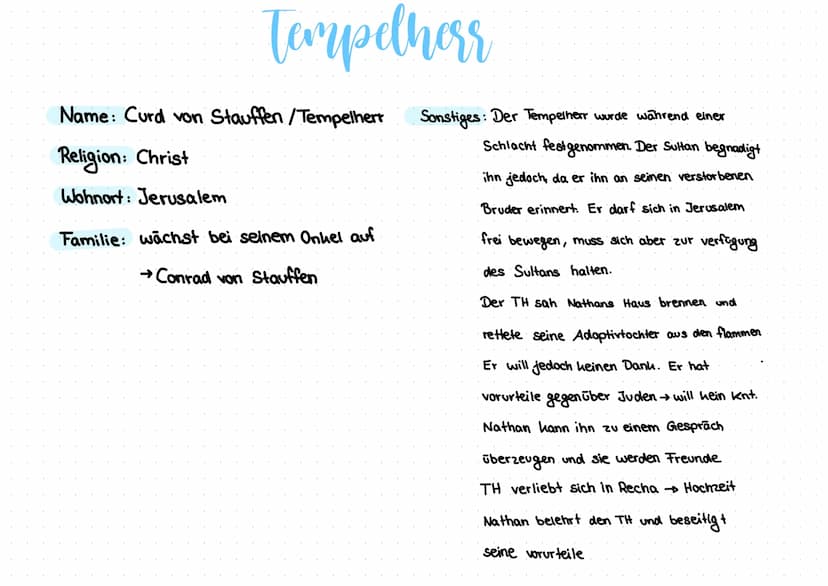 Tempelherr
Name: Curd von Stauffen / Tempelherr
Religion: Christ
Wohnort: Jerusalem
Familie: wächst bei seinem Onkel auf
→ Conrad von Stauffen
Sonstiges: Der Tempelherr wurde während einer
Schlacht festgenommen. Der Sultan begnadigt
ihn jedoch, da er ihn an seinen verstorbenen
Bruder erinnert. Er darf sich in Jerusalem
frei bewegen, muss sich aber zur verfügung
des Sultans halten.
Der TH sah Nathans Haus brennen und
rettete seine Adoptivtochter aus den flammen
Er will jedoch keinen Dank. Er hat
vorurteile gegenüber Juden → will kein Knt.
Nathan kann ihn zu einem Gespräch
überzeugen und sie werden Freunde
TH verliebt sich in Recha → Hochzeit
Nathan belehrt den TH und beseitigt
seine vorurteile